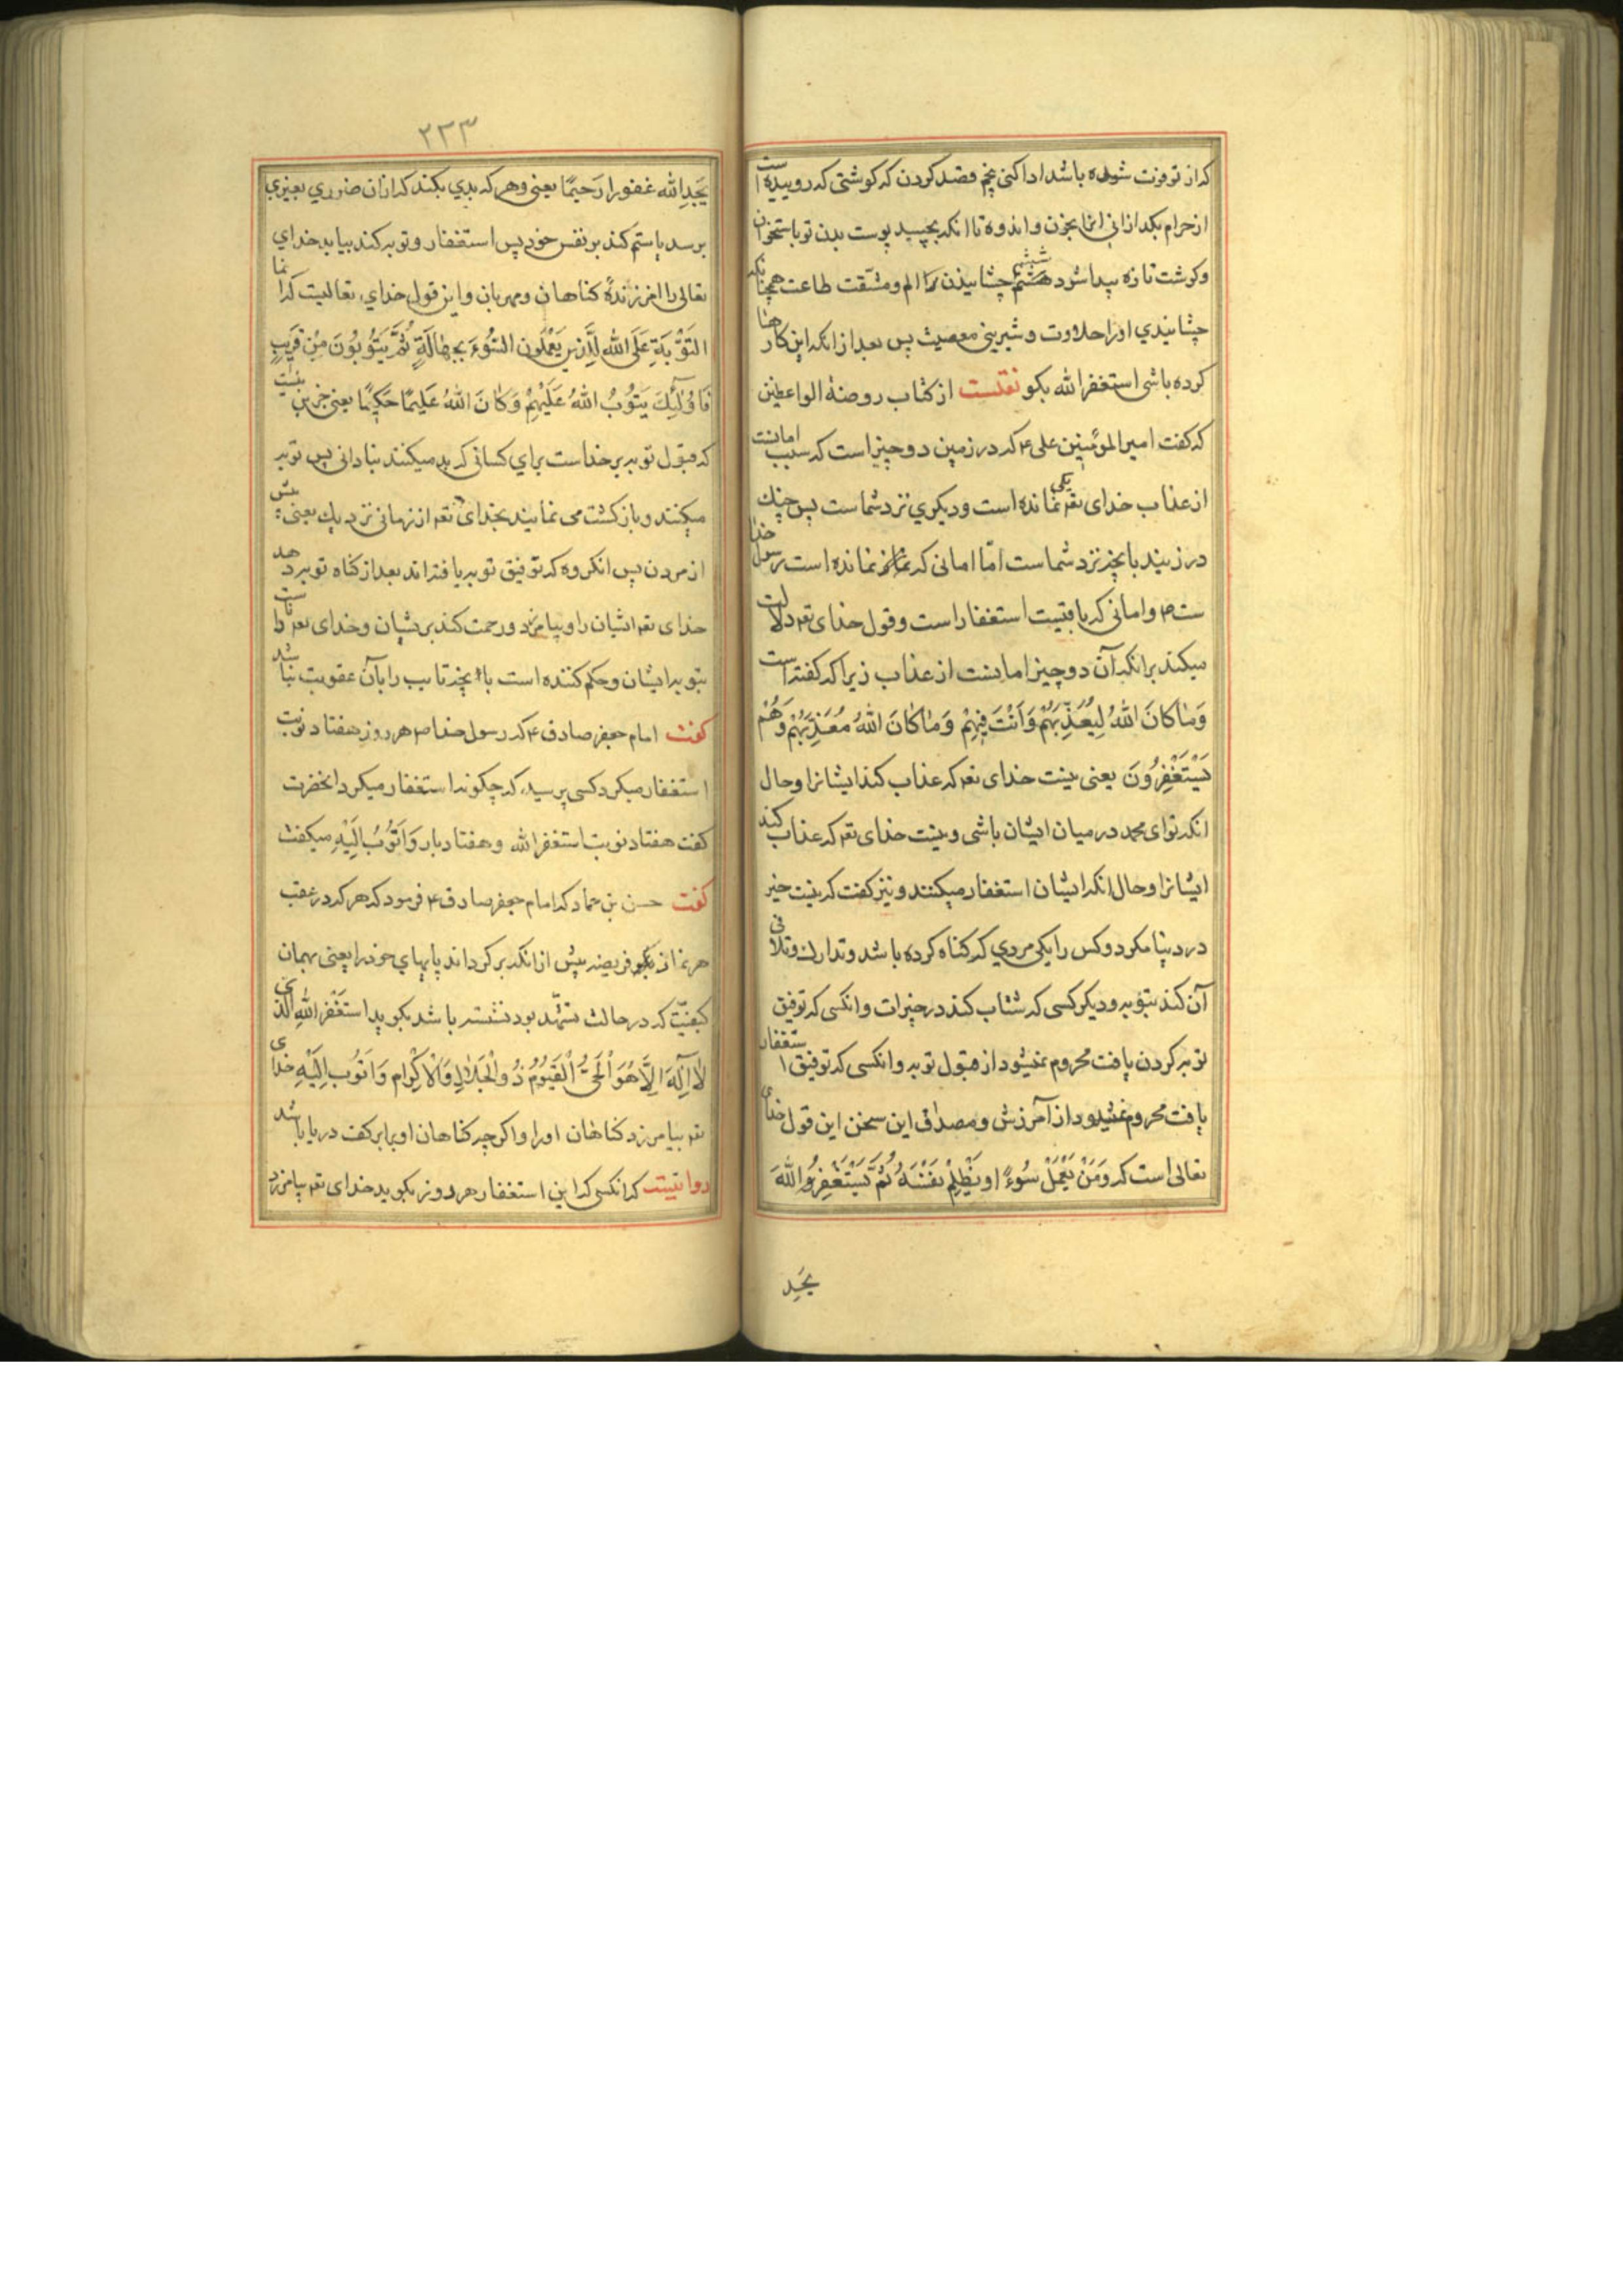 که از تو فوت شده باشد ادا کنی پنجم قصد کردن که کوشتی که روییده است
از حرام بکدازانی انرا بحزن و اندوه تا انکه بچسپد پوست بدن تو باستخوان
و کوشت تازه پیدا شود ششم چشانیدن ترا الم و مشقت طاعت همچنانکه
چشانیدی اورا حلاوت و شیرینی معصیت پس بعد از انکه این کارها
کرده باشی استغفر الله بکو نقلست از کتاب روضة الواعظین
که کفت امیر المؤمنین علی ۴ که در زمین دو چیز است که سبب امانست
از عذاب خدای تعه یکی نمانده است و دیکری نزد شماست پس چنک
در زنید بانچه نزد شماست امّا امانی که نمانده است رسول خدا
ست ص و امانی که باقیست استغفار است و قول خدای تعه دلالت
میکند بر انکه آن دو چیز امانست از عذاب زیرا که کفته است
وَمٰا کٰانَ اللهُ لِیُعَذِّبَهُمْ وَاَنْتَ فِیهِمْ وَمٰا کٰانَ اللهُ مُعَذِّبَهُمْ وَهُمْ
یَسْتَغْفِرُونَ یعنی نیست خدای تعه که عذاب کند ایشانرا و حال
انکه تو ای محمد در میان ایشان باشی و نیست خدای تعه که عذاب کند
ایشانرا و حال انکه ایشان استغفار میکنند و نیز کفت که نیست خیر
در دنیا مکر دو کس را یکی مردی که کناه کرده باشد و تدارک و تلافی
آن کند بتوبه و دیکر کسی که شتاب کند در خیرات و انکسی که توفیق
توبه کردن یافت محروم نمیشود از قبول توبه و انکسی که توفیق استغفار
یافت محروم نمیشود از آمرزش و مصداق این سخن این قول خدای
تعالی است که وَمَنْ یَعْمَلْ سُوءً او یَظْلِمْ نَفْسَهُ ثُمَّ یَسْتَغْفِرِ اللهَ
یَجِدِ
۲۳۳
یَجَدِ الله غفورا رَحیمًا یعنی و هر که بدی بکند که ازان ضرری بغیری
برسد یا ستم کند بر نفس خود پس استغفار و توبه کند بیابد خدای
تعالی را امرزندهٔ کناهان و مهربان و این قول خدای تعالیست که انما
التَوْبَةِ عَلَی الله لِلَّذینَ یَعْمَلُون السُّوءَ بِجَهٰالَةٍ ثُمَّ یَتُوبُونَ مِنْ قَریبٍ
فَاُولٰئِکَ یَتُوبُ اللهُ عَلَیْهِمْ وَکٰانَ اللهُ عَلیمًا حَکیمًا یعنی جز این نیست
که قبول توبه بر خداست برای کسانی که بد میکنند بنادانی پس توبه
میکنند و باز کشت می نمایند بخدای تعه از زمانی نزدیک یعنی پیش
از مردن پس انکروه که توفیق توبه یافته اند بعد از کناه توبه دهد
خدای تعه ایشان را و بیامرزد و رحمت کند بر ایشان و خدای تعه داناست
بتوبه ایشان و حکم کننده است بانچه تایب را بآن عقوبت نباشد
کفت امام جعفر صادق ۴ که رسول خدا ص هر روز هفتاد نوبت
استغفار میکرد کسی پرسید که چکونه استغفار میکرد انحضرت
کفت هفتاد نوبت استغفر الله و هفتاد بار وَاَتُوبُ اِلَیْهِ میکفت
کفت حسن بن حماد که امام جعفر صادق ۴ فرمود که هر که در عقب
هر نماز فریضه پیش از انکه بر کرداند پایهای خود را یعنی بهمان
کیفیت که در حالت تشهّد بود نشسته باشد بکوید استَغْفِرُ اللهَ الَّذی
لٰا اِلٰهَ اِلَّا هُوَ اْلحَیُّ اْلقَیُّومُ ذُوالْجَلٰالِ وَاْلاِکْرام وَاَتُوبُ اِلَیْهِ خدای
تعه بیامرزد کناهان اورا و اکر چه کناهان او برابر کفت دریا باشد
روایتیست که انکسی که این استغفار هر روز بکوید خدای تعه بیامرزد